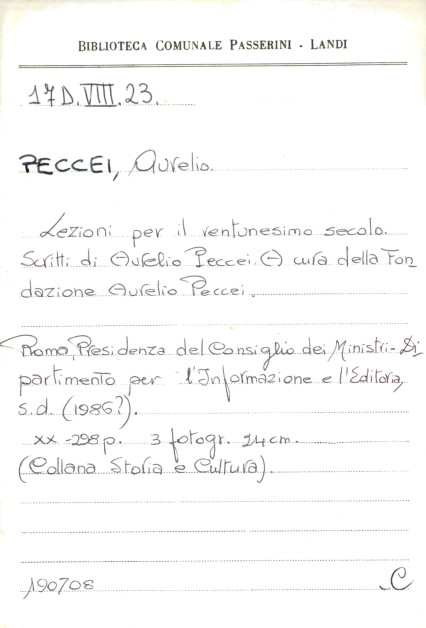 BIBLIOTECA COMUNALE PASSERINI - LANDI
17D.VIII.23.
PECCEI, Aurelio.
Lezioni per il ventunesimo secolo.
Scritti di Aurelio Peccei. A cura della Fon
dazione Aurelio Peccei.
Roma, Presidenza del Consiglio dei Ministri-Di
partimento per l'Informazione e l'Editoria,
s.d. (1986?).
xx-298p. 3 fotogr. 24cm.
(Collana Storia e Cultura).
190708 C